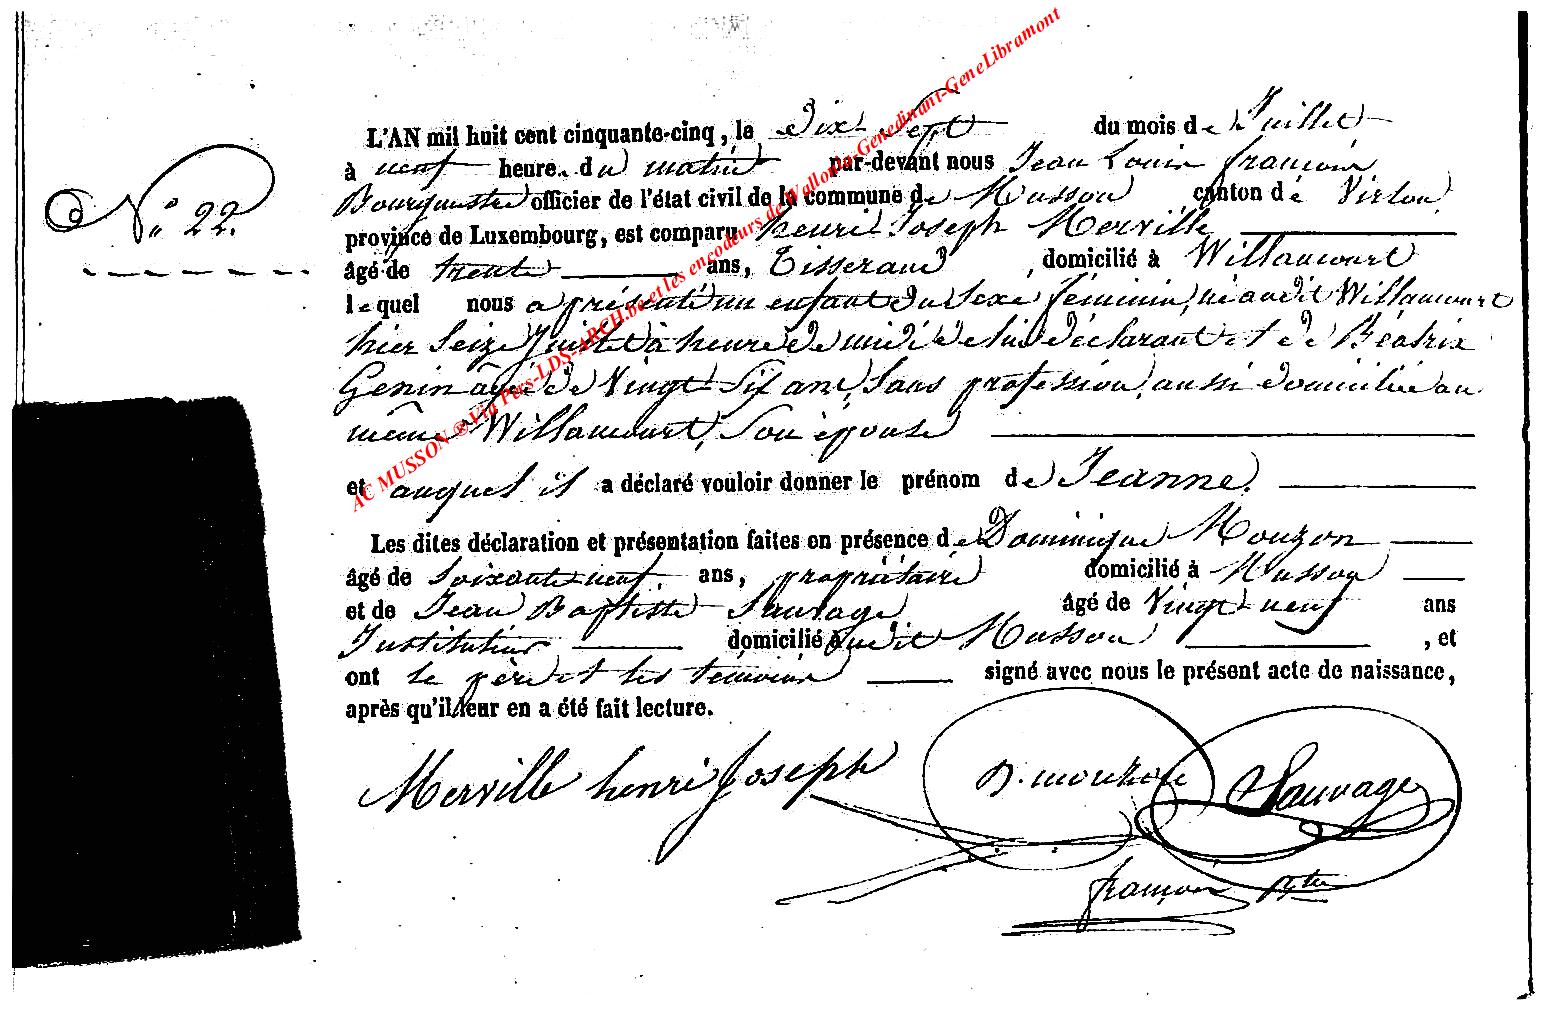 N° 22.
L'AN mil huit cent cinquante-cinq, le Dix Sept du mois de Juillet
à neuf heure. du matin par-devant nous Jean Louis françois
Bourgmestre officier de l'état civil de la commune de Musson canton de Virton
province de Luxembourg, est comparu henri Joseph Merville
âgé de trente ans, Tisserand, domicilié à Willancourt
lequel nous a présenté un enfant du Sexe féminin, né audit Willancourt
hier Seize Juillet à heure de midi de lui déclarant et de Béatrix
Genin âgée de Vingt Six ans, Sans profession, aussi domiciliée au
même Willancourt, Son épouse
et auquel il a déclaré vouloir donner le prénom de Jeanne.
Les dites déclaration et présentation faites en présence de Dominique Mouzon
âgé de Soixante neuf ans, propriétaire domicilié à Musson
et de Jean Baptiste Sauvage âgé de Vingt neuf ans
Instituteur domicilié audit Musson, et
ont le père et les témoins signé avec nous le présent acte de naissance,
après qu'il leur en a été fait lecture.
Merville henri Joseph D. mouzon Sauvage
françois
AC MUSSON ® Via Pers-LDS-ARCH.be et les encodeurs de Wallonia-Genedinant-GeneLibramont